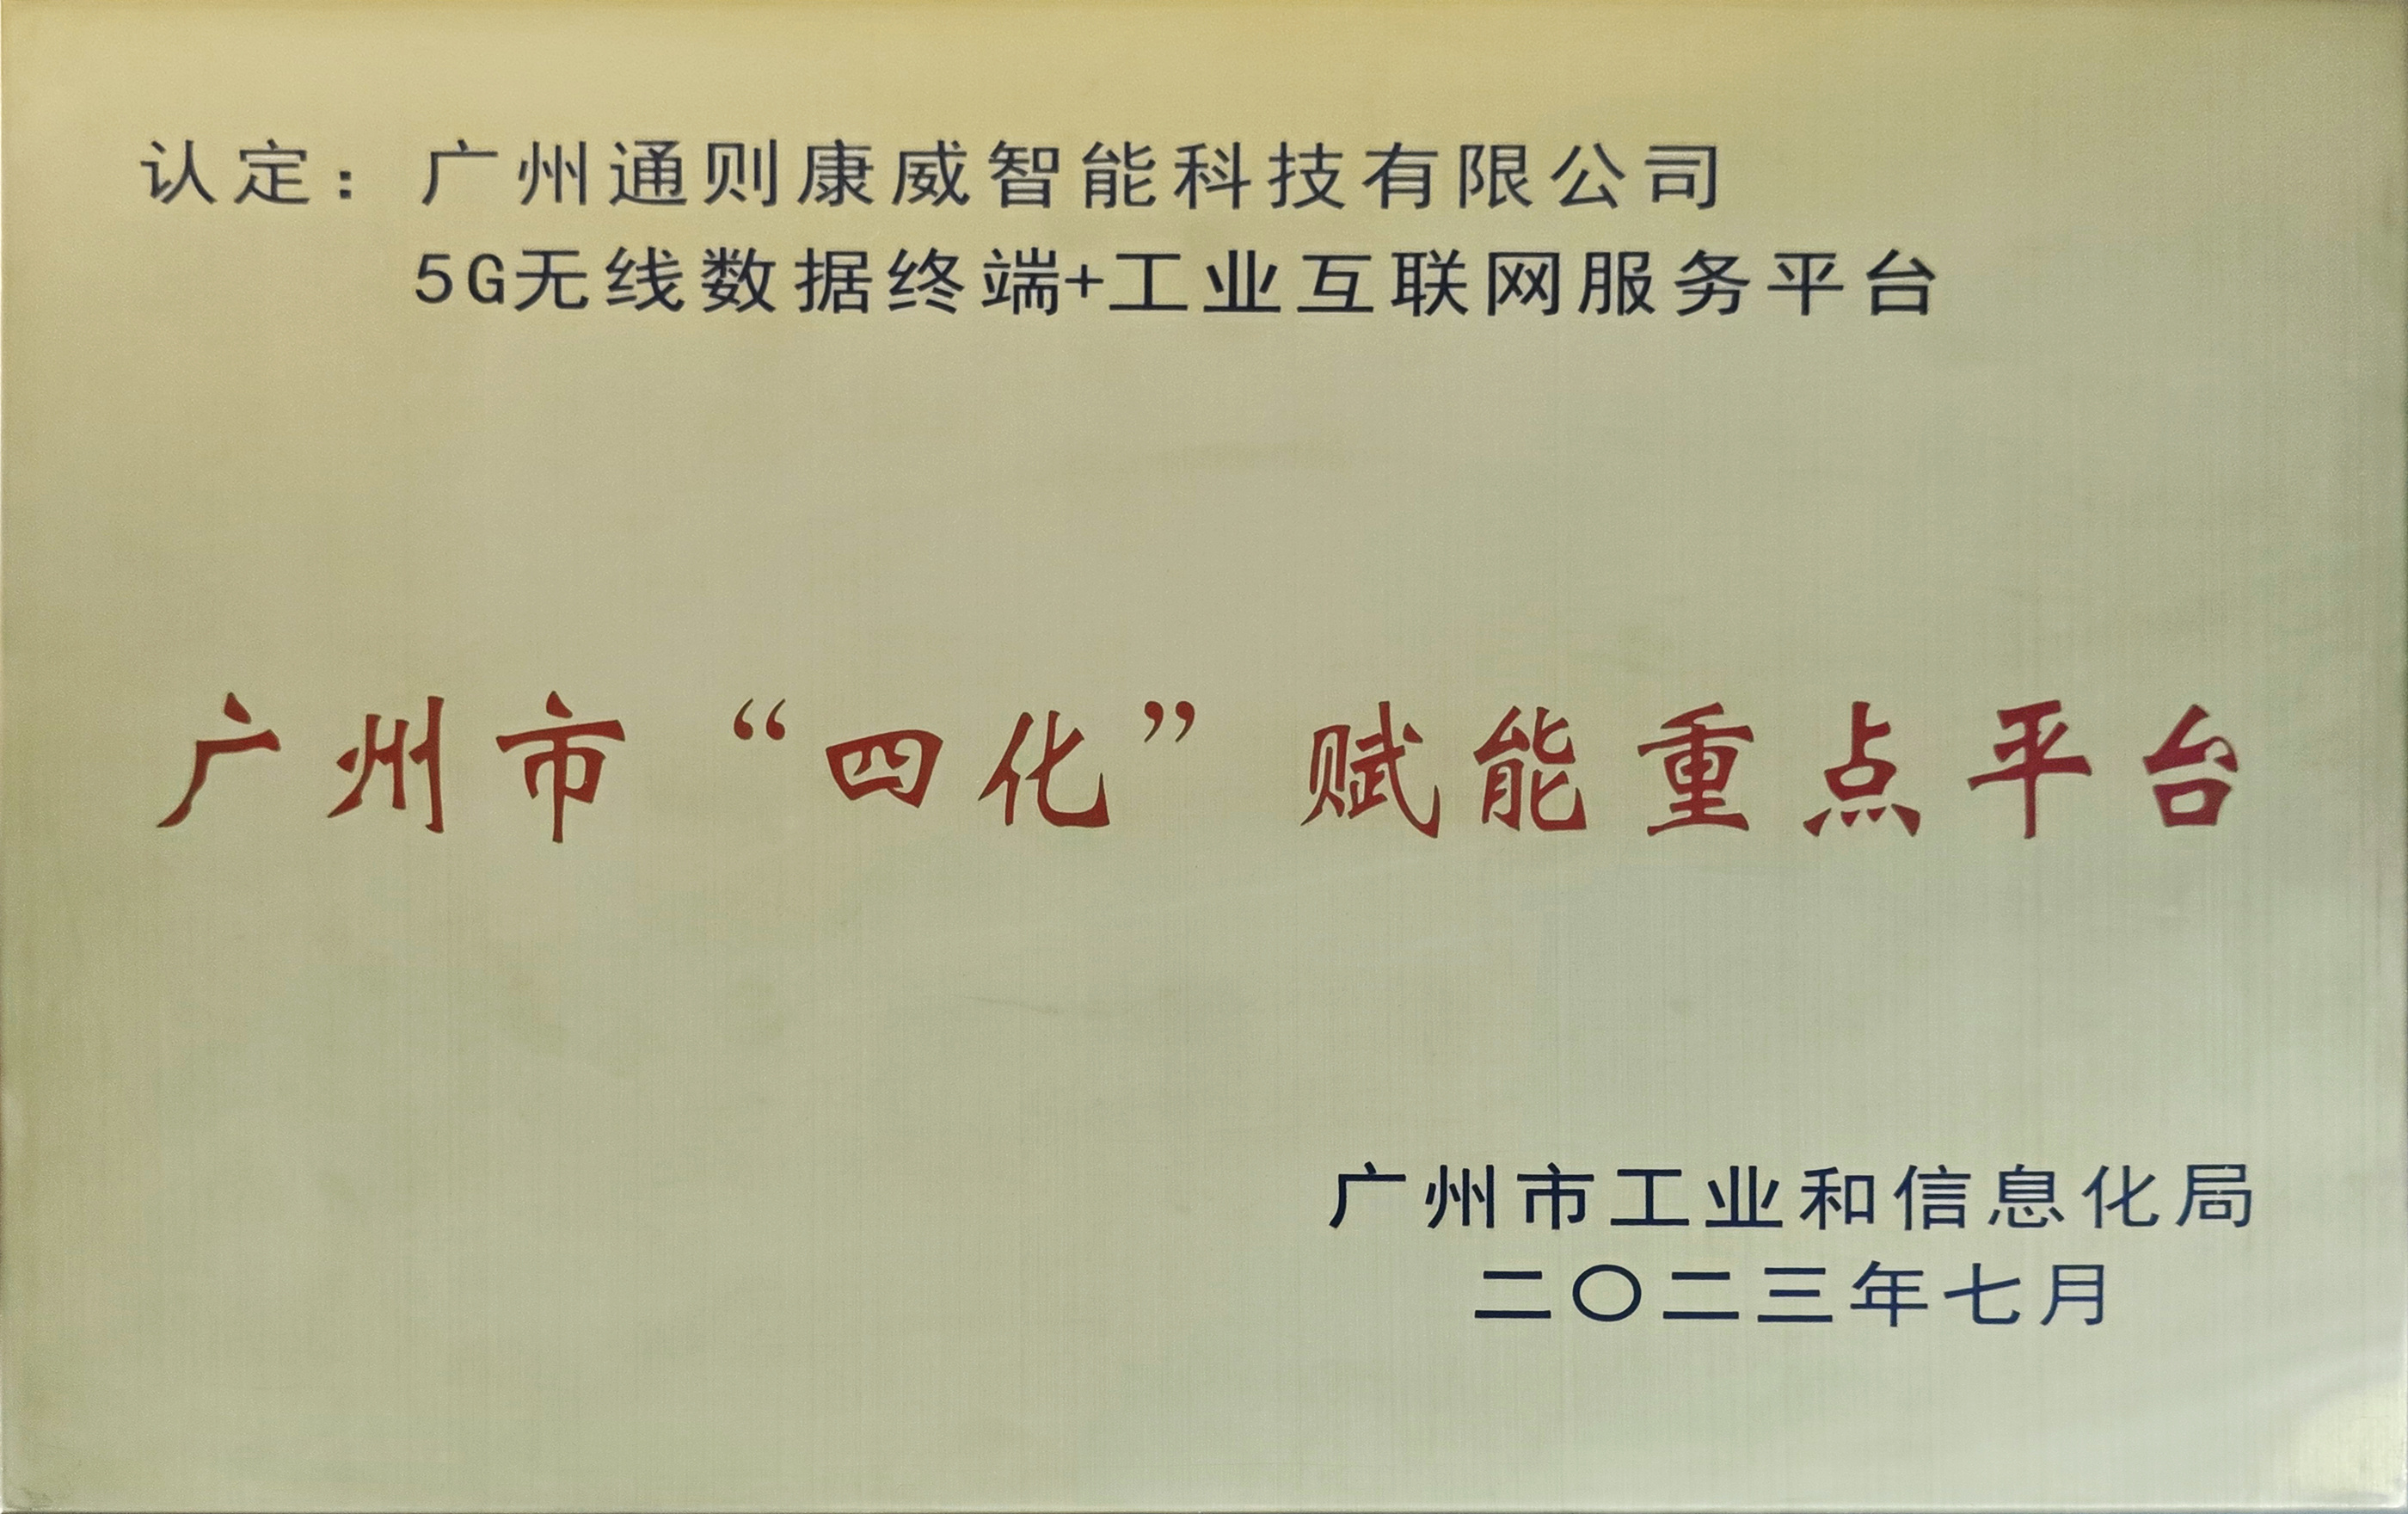 认定：广州通则康威智能科技有限公司
5G无线数据终端+工业互联网服务平台
广州市“四化”赋能重点平台
广州市工业和信息化局
二〇二三年七月